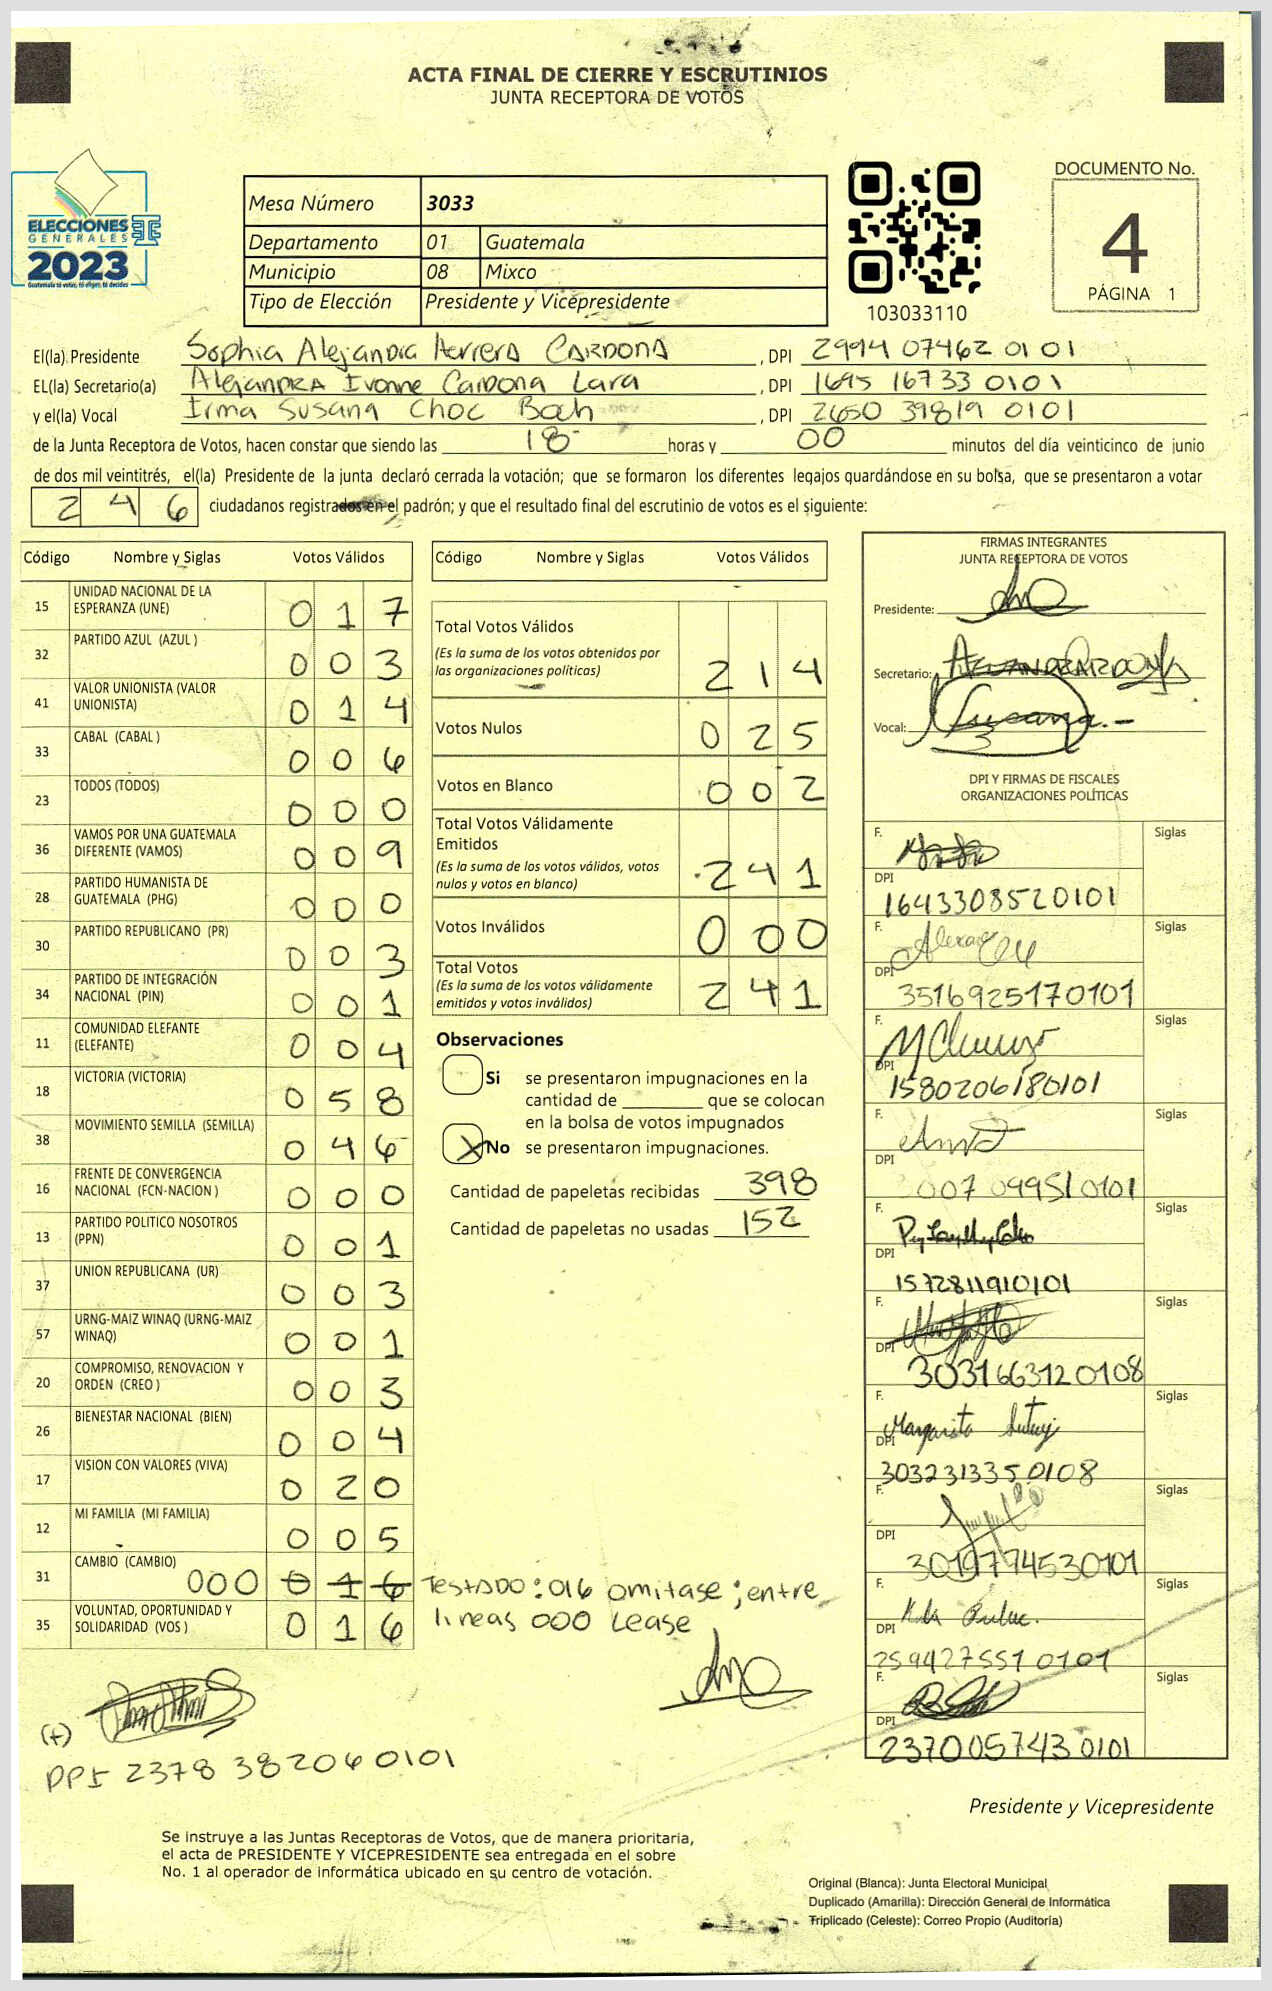 ACTA FINAL DE CIERRE Y ESCRUTINIOS
JUNTA RECEPTORA DE VOTOS
ELECCIONES
GENERALES
2023
Guatemala tú votas, tú eliges, tú decides
Mesa Número 3033
Departamento 01 Guatemala
Municipio 08 Mixco
Tipo de Elección Presidente y Vicepresidente
103033110
DOCUMENTO No.
4
PÁGINA 1
El(la) Presidente Sophia Alejandra Herrera Cardona, DPI 2994 07462 0101
EL(la) Secretario(a) Alejandra Ivonne Cardona Lara, DPI 1695 16733 0101
y el(la) Vocal Irma Susana Choc Boch, DPI 2650 39819 0101
de la Junta Receptora de Votos, hacen constar que siendo las 18 horas y 00 minutos del día veinticinco de junio
de dos mil veintitrés, el(la) Presidente de la junta declaró cerrada la votación; que se formaron los diferentes legajos guardándose en su bolsa, que se presentaron a votar
246 ciudadanos registrados en el padrón; y que el resultado final del escrutinio de votos es el siguiente:
Código Nombre y Siglas Votos Válidos
15 UNIDAD NACIONAL DE LA
ESPERANZA (UNE) 017
32 PARTIDO AZUL (AZUL ) 003
41 VALOR UNIONISTA (VALOR
UNIONISTA) 014
33 CABAL (CABAL ) 006
23 TODOS (TODOS) 000
36 VAMOS POR UNA GUATEMALA
DIFERENTE (VAMOS) 009
28 PARTIDO HUMANISTA DE
GUATEMALA (PHG) 000
30 PARTIDO REPUBLICANO (PR) 003
34 PARTIDO DE INTEGRACIÓN
NACIONAL (PIN) 001
11 COMUNIDAD ELEFANTE
(ELEFANTE) 004
18 VICTORIA (VICTORIA) 058
38 MOVIMIENTO SEMILLA (SEMILLA) 046
16 FRENTE DE CONVERGENCIA
NACIONAL (FCN-NACION ) 000
13 PARTIDO POLITICO NOSOTROS
(PPN) 001
37 UNION REPUBLICANA (UR) 003
57 URNG-MAIZ WINAQ (URNG-MAIZ
WINAQ) 001
20 COMPROMISO, RENOVACION Y
ORDEN (CREO ) 003
26 BIENESTAR NACIONAL (BIEN) 004
17 VISION CON VALORES (VIVA) 020
12 MI FAMILIA (MI FAMILIA) 005
31 CAMBIO (CAMBIO) 000 016
35 VOLUNTAD, OPORTUNIDAD Y
SOLIDARIDAD (VOS ) 016
(f)
DPI 2378 382060101
Código Nombre y Siglas Votos Válidos
Total Votos Válidos
(Es la suma de los votos obtenidos por
las organizaciones políticas) 214
Votos Nulos 025
Votos en Blanco 002
Total Votos Válidamente
Emitidos
(Es la suma de los votos válidos, votos
nulos y votos en blanco) 241
Votos Inválidos 000
Total Votos
(Es la suma de los votos válidamente
emitidos y votos inválidos) 241
Observaciones
Si se presentaron impugnaciones en la
cantidad de ________ que se colocan
en la bolsa de votos impugnados
X No se presentaron impugnaciones.
Cantidad de papeletas recibidas 398
Cantidad de papeletas no usadas 152
Testado: 016 omitase; entre
lineas 000 Lease
FIRMAS INTEGRANTES
JUNTA RECEPTORA DE VOTOS
Presidente:
Secretario:
Vocal: Susana
DPI Y FIRMAS DE FISCALES
ORGANIZACIONES POLÍTICAS
F. Siglas
DPI 1643308520101
F. Siglas
DPI 3516925170101
F. Siglas
DPI 1580206180101
F. Siglas
DPI 007 099510101
F. Siglas
DPI 1572811910101
F. Siglas
DPI 3031663120108
F. Margarita Siglas
DPI 3032313350108
F. Siglas
DPI 3019774530101
F. Siglas
DPI 2594275510101
F. Siglas
DPI 2370057430101
Presidente y Vicepresidente
Se instruye a las Juntas Receptoras de Votos, que de manera prioritaria,
el acta de PRESIDENTE Y VICEPRESIDENTE sea entregada en el sobre
No. 1 al operador de informática ubicado en su centro de votación.
Original (Blanca): Junta Electoral Municipal
Duplicado (Amarilla): Dirección General de Informática
Triplicado (Celeste): Correo Propio (Auditoría)